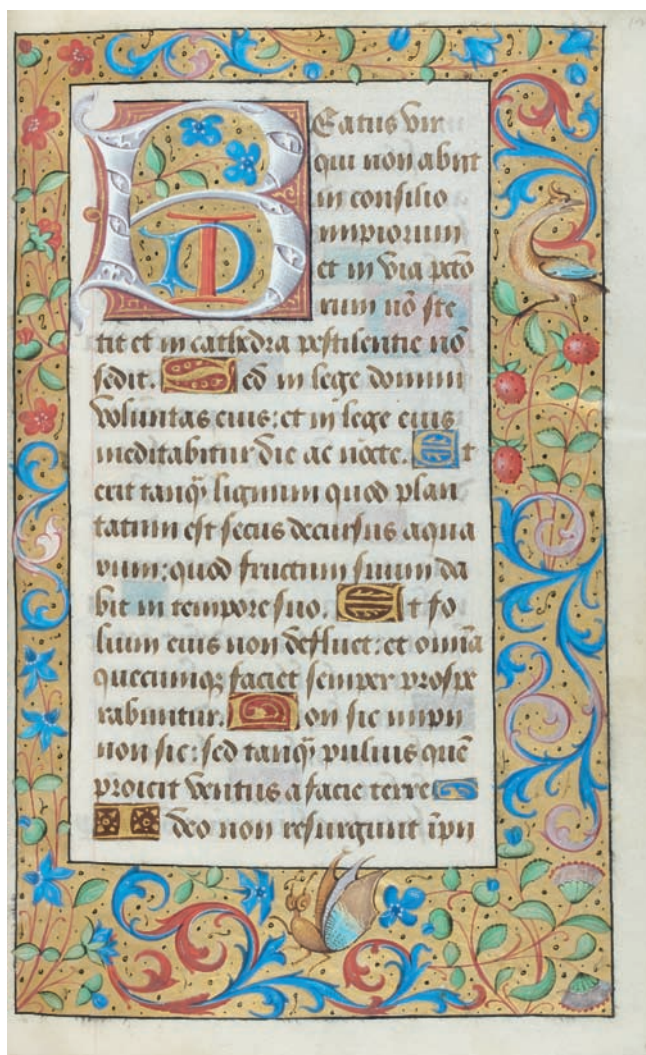 Beatus vir
qui non abiit
in consilio
impiorum
et in via pctō
rum nō ste
tit et in cathedra pestilentie nō
sedit. Sed in lege domini
voluntas eius: et in lege eius
meditabitur die ac nocte. Et
erit tanq̄ lignum quod plan
tatum est secus decursus aqua
rum: quod fructum suum da
bit in tempore suo. Et fo
lium eius non defluet: et omīa
quecumq; faciet semper prospe
rabuntur. Non sic impii
non sic: sed tanq̄ puluis quē
proicit ventus a facie terre
Ideo non resurgunt īpii